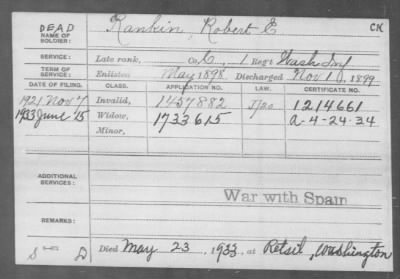 DEAD
NAME OF SOLDIER: Rankin, Robert E CK
SERVICE: Late rank, Co. C, 1 Regt Wash Inf
TERM OF SERVICE: Enlisted May 1898 Discharged Nov 1, 1899
DATE OF FILING. CLASS. APPLICATION NO. LAW. CERTIFICATE NO.
1921 Nov 7 Invalid, 1437882 J/20 1214661
1933 June 15 Widow, 1733615 a-4-24-34
Minor,
ADDITIONAL SERVICES:
War with Spain
REMARKS:
S D Died May 23, 1933, at Retsil, Washington